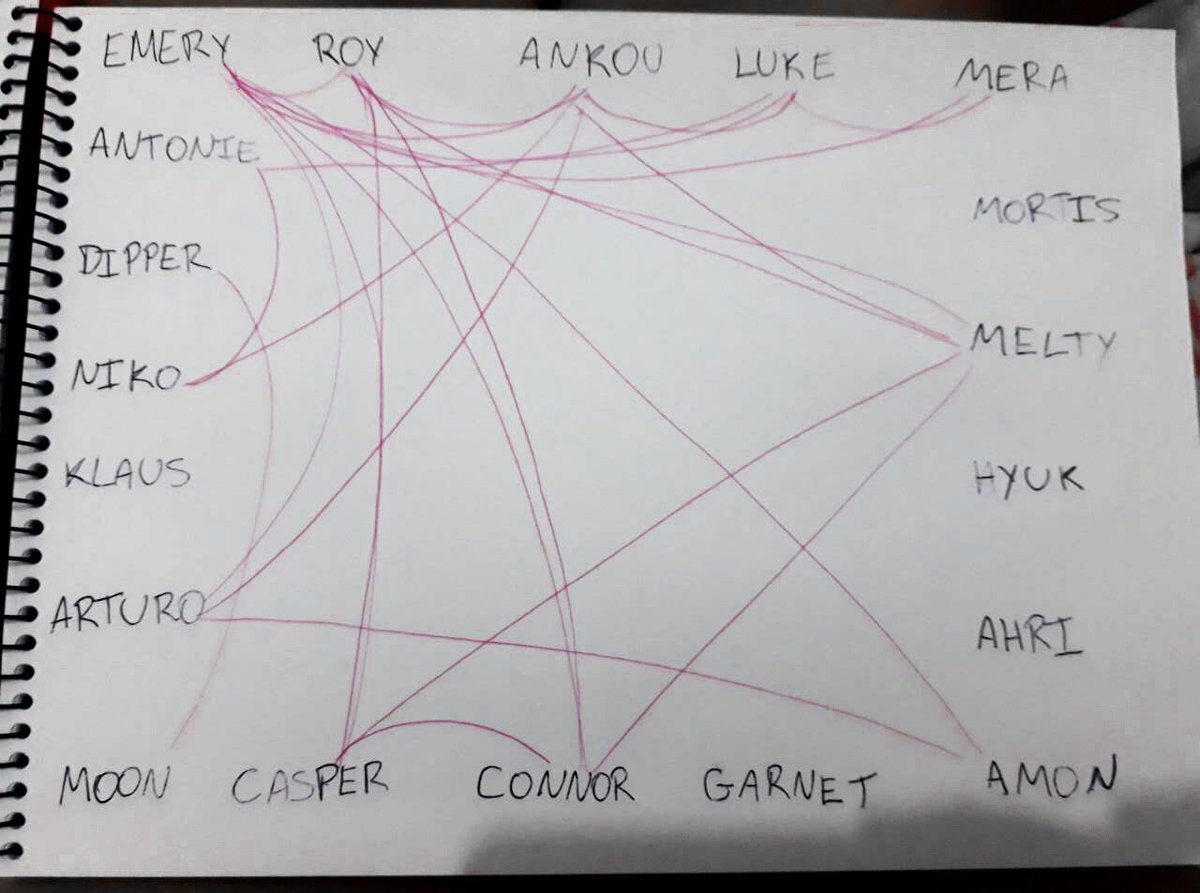 EMERY ROY ANKOU LUKE MERA
ANTONIE
MORTIS
DIPPER
MELTY
NIKO
KLAUS
HYUK
ARTURO
AHRI
MOON CASPER CONNOR GARNET AMON